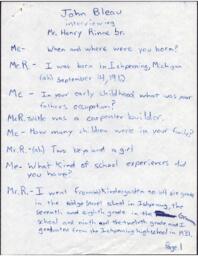 John Bleau
interviewing
Mr. Henry Rinne Sr.
Me- When and where were you born?
Mr.R- I was born in Ishpeming, Michigan
(ah) September 14, 1913
Me- In your early childhood what was your
father's occupation?
Mr.R. was a carpenter builder.
Me- How many children were in your family?
Mr.R-(ah) Two boys and a girl
Me- What kind of school experiences did
you have?
Mr.R- I went from kindergarten to
in the school in Ishpeming, the
seventh and eighth grade in the
school and ninth and the twelfth grade and I
graduated from the Ishpeming high school in 1931.
Page 1